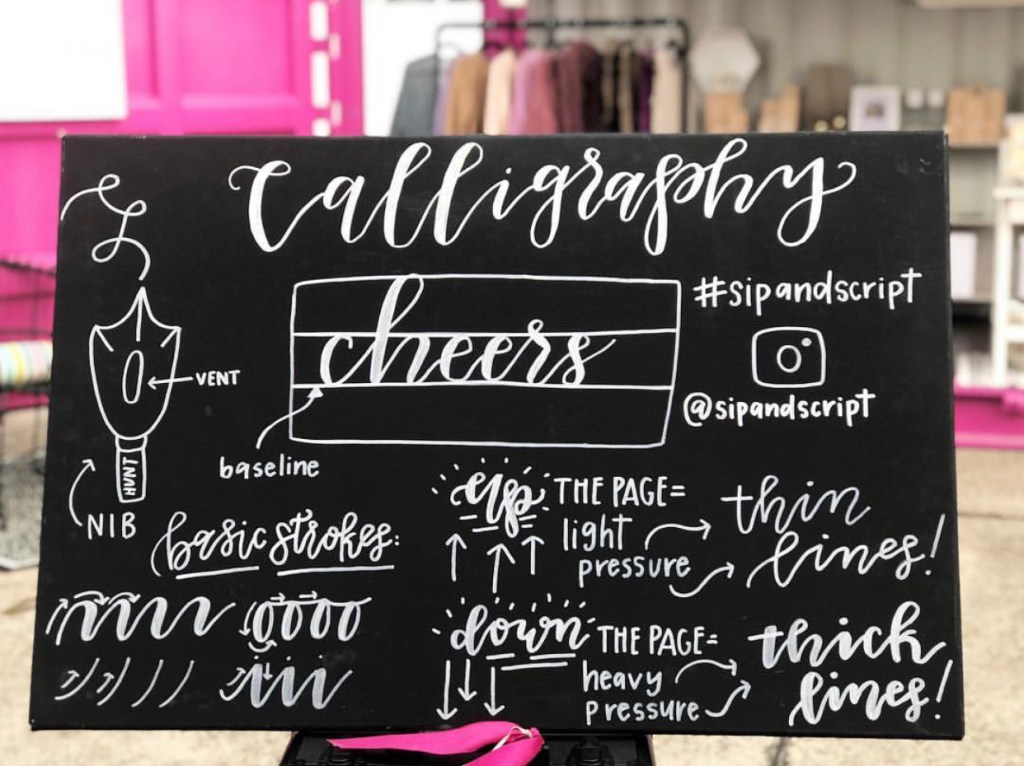 Calligraphy
cheers
#sipandscript
@sipandscript
VENT
baseline
HUNT
NIB
basic strokes:
up THE PAGE=
light
pressure
thin
lines!
down THE PAGE=
heavy
pressure
thick
lines!